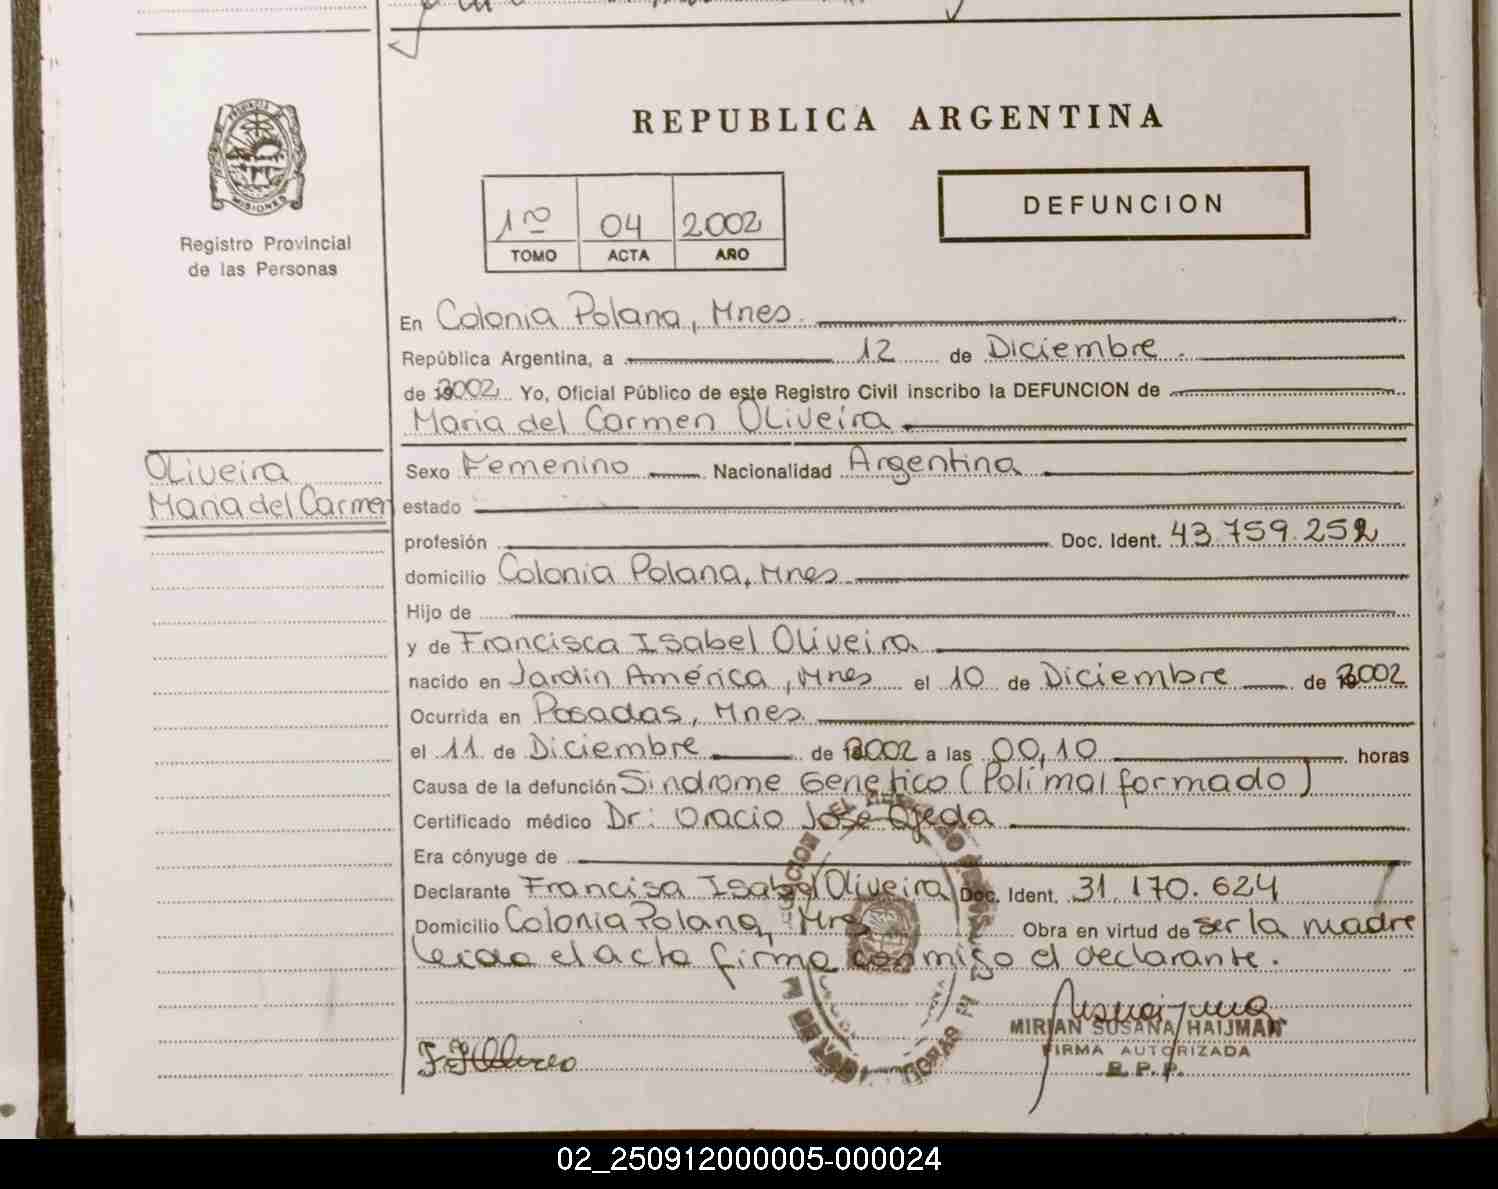 PROVINCIA
MISIONES
Registro Provincial
de las Personas
REPUBLICA ARGENTINA
1ro 04 2002
TOMO ACTA AÑO
DEFUNCION
En Colonia Polana, Mnes.
República Argentina, a 12 de Diciembre.
de 2002 Yo, Oficial Público de este Registro Civil inscribo la DEFUNCION de
Maria del Carmen Oliveira
Oliveira
Maria del Carmen
Sexo Femenino Nacionalidad Argentina
estado
profesión Doc. Ident. 43.759.252
domicilio Colonia Polana, Mnes
Hijo de
y de Francisca Isabel Oliveira
nacido en Jardin América, Mnes el 10 de Diciembre de 2002
Ocurrida en Posadas, Mnes.
el 11 de Diciembre de 2002 a las 00,10 horas
Causa de la defunción Sindrome Genetico (Polimalformado)
Certificado médico Dr: Oracio José Ojeda
Era cónyuge de
Declarante Francisa Isabel Oliveira Doc. Ident. 31.170.624
Domicilio Colonia Polana, Mns Obra en virtud de ser la madre
Leida el acta firma conmigo el declarante.
MIRIAN SUSANA HAIJMAN
FIRMA AUTORIZADA
R. P. P.
02_250912000005-000024